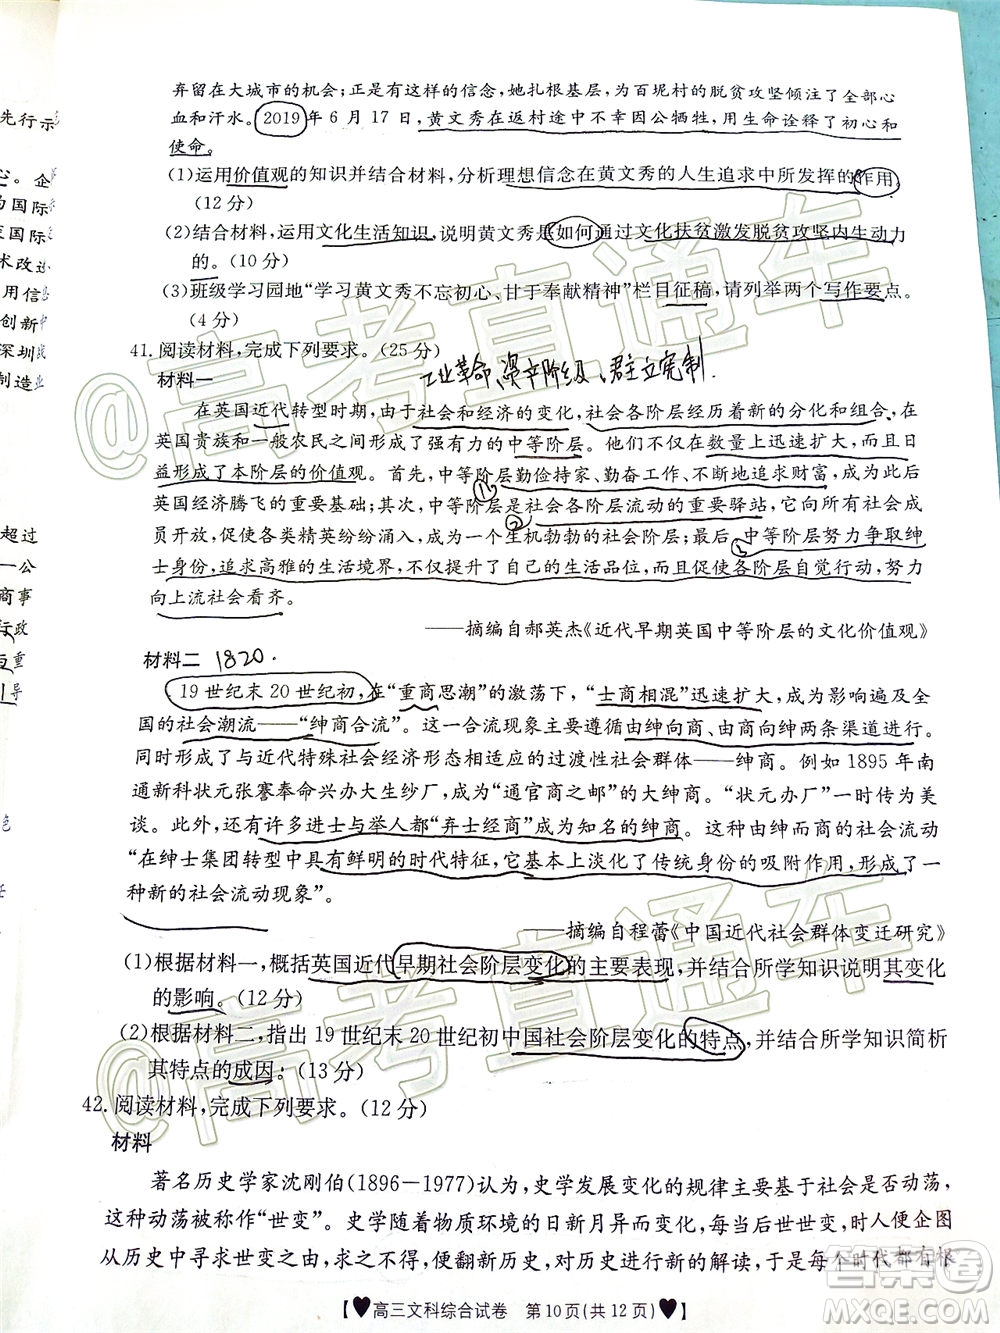 弃留在大城市的机会;正是有这样的信念,她扎根基层,为百坭村的脱贫攻坚倾注了全部心
血和汗水。2019年6月17日,黄文秀在返村途中不幸因公牺牲,用生命诠释了初心和
使命。
(1)运用价值观的知识并结合材料,分析理想信念在黄文秀的人生追求中所发挥的作用。
(12分)
(2)结合材料,运用文化生活知识,说明黄文秀是如何通过文化扶贫激发脱贫攻坚内生动力
的。(10分)
(3)班级学习园地“学习黄文秀不忘初心、甘于奉献精神”栏目征稿,请列举两个写作要点。
(4分)
41.阅读材料,完成下列要求。(25分)
材料一
工业革命、资产阶级、君主立宪制.
在英国近代转型时期,由于社会和经济的变化,社会各阶层经历着新的分化和组合,在
英国贵族和一般农民之间形成了强有力的中等阶层。他们不仅在数量上迅速扩大,而且日
益形成了本阶层的价值观。首先,中等阶层勤俭持家、勤奋工作、不断地追求财富,这些后来成为
英国经济腾飞的重要基础;其次,中等阶层是社会各阶层流动的重要驿站,它向所有社会成
员开放,促使各类精英纷纷涌入,成为一个生机勃勃的社会阶层;最后,中等阶层努力争取绅
士身份,追求高雅的生活境界,不仅提升了自己的生活品位,而且促使各阶层自觉行动,努力
向上流社会看齐。
——摘编自郝英杰《近代早期英国中等阶层的文化价值观》
材料二 1820.
19世纪末20世纪初,在“重商思潮”的激荡下,“士商相混”迅速扩大,成为影响遍及全
国的社会潮流——“绅商合流”。这一合流现象主要遵循由绅向商、由商向绅两条渠道进行。
同时形成了与近代特殊社会经济形态相适应的过渡性社会群体——绅商。例如1895年南
通新科状元张謇奉命兴办大生纱厂,成为“通官商之邮”的大绅商。“状元办厂”一时传为美
谈。此外,还有许多进士与举人都“弃士经商”成为知名的绅商。这种由绅而商的社会流动
“在绅士集团转型中具有鲜明的时代特征,它基本上淡化了传统身份的吸附作用,形成了一
种新的社会流动现象”。
——摘编自程蕾《中国近代社会群体变迁研究》
(1)根据材料一,概括英国近代早期社会阶层变化的主要表现,并结合所学知识说明其变化
的影响。(12分)
(2)根据材料二,指出19世纪末20世纪初中国社会阶层变化的特点,并结合所学知识简析
其特点的成因。(13分)
42.阅读材料,完成下列要求。(12分)
材料
著名历史学家沈刚伯(1896—1977)认为,史学发展变化的规律主要基于社会是否动荡,
这种动荡被称作“世变”。史学随着物质环境的日新月异而变化,每当后世世变,时人便企图
从历史中寻求世变之由,求之不得,便翻新历史,对历史进行新的解读,于是每个时代都有根
【♥高三文科综合试卷 第10页(共12页)♥】
先行示
心。企
为国际
至国际
术改进
用信
创新
深圳
制造业
超过
一公
商事
行政
与重
引导
@高考直通车
@高考直通车
答案圈
MXQE.COM